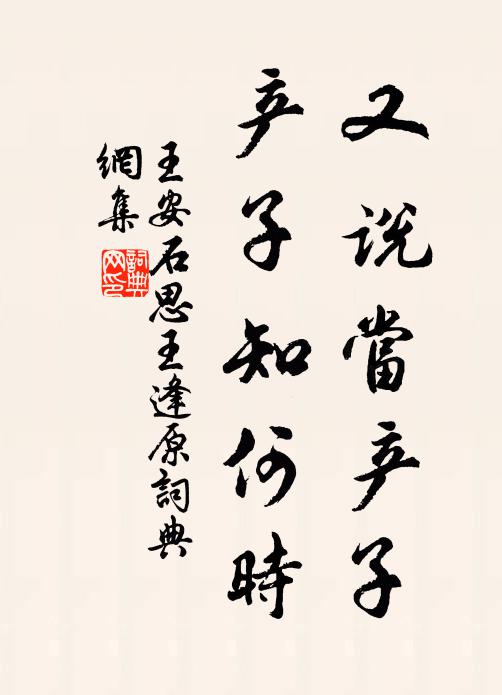 又说當产子
产子知何時
王安石思王逢原詞典
網集
詞典
网印